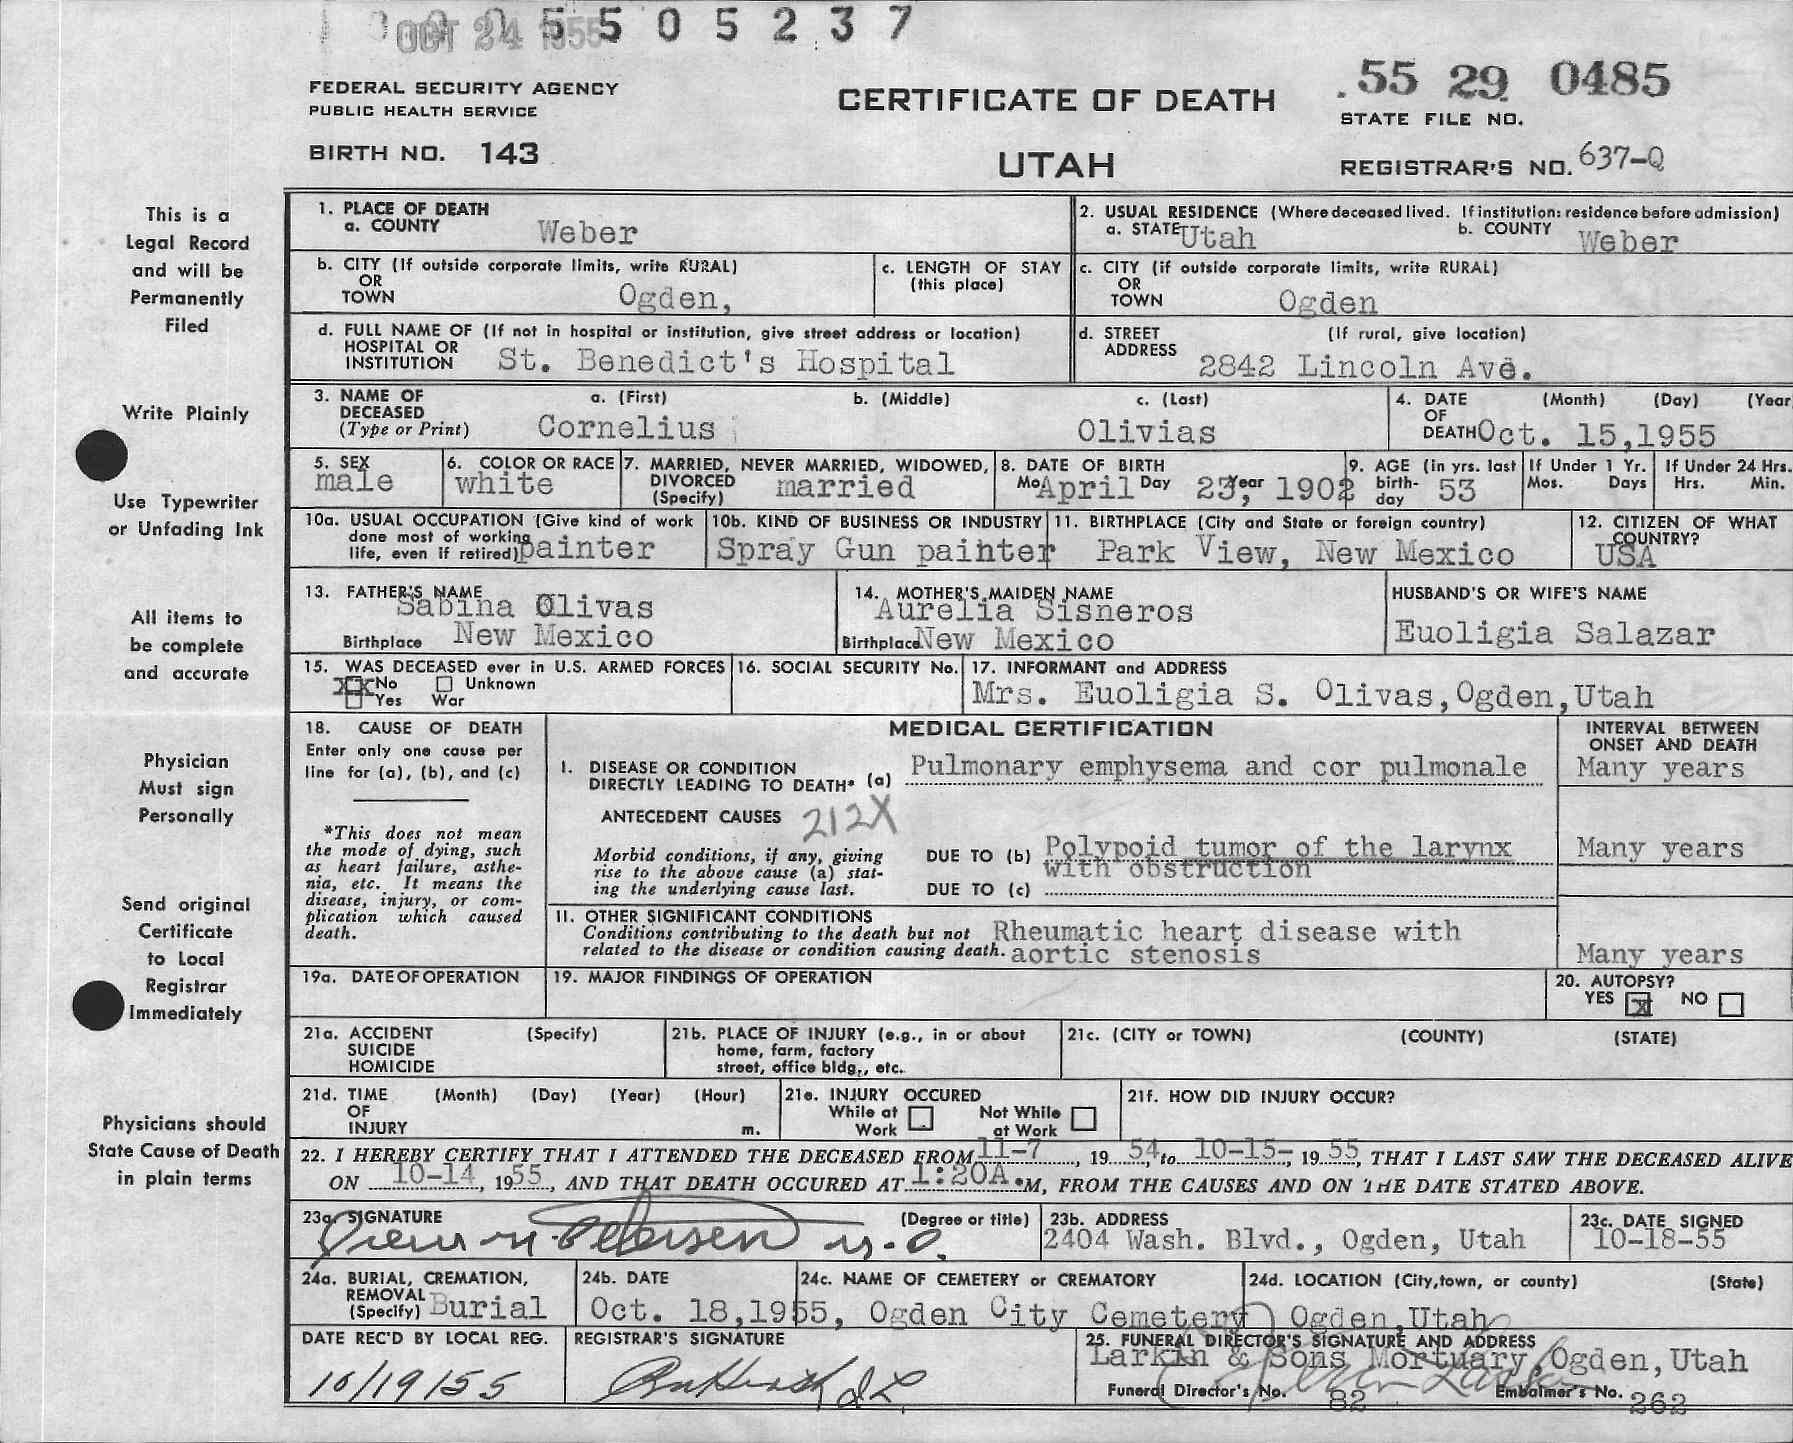 OCT 24 1955
5 5 0 5 2 3 7
FEDERAL SECURITY AGENCY
PUBLIC HEALTH SERVICE
BIRTH NO. 143
CERTIFICATE OF DEATH
UTAH
55 29 0485
STATE FILE NO.
REGISTRAR'S NO. 637-Q
This is a
Legal Record
and will be
Permanently
Filed
Write Plainly
Use Typewriter
or Unfading Ink
All items to
be complete
and accurate
Physician
Must sign
Personally
Send original
Certificate
to Local
Registrar
Immediately
Physicians should
State Cause of Death
in plain terms
1. PLACE OF DEATH
a. COUNTY Weber
2. USUAL RESIDENCE (Where deceased lived. If institution: residence before admission)
a. STATE Utah b. COUNTY Weber
b. CITY (If outside corporate limits, write RURAL)
OR
TOWN Ogden,
c. LENGTH OF STAY
(this place)
c. CITY (if outside corporate limits, write RURAL)
OR
TOWN Ogden
d. FULL NAME OF (If not in hospital or institution, give street address or location)
HOSPITAL OR
INSTITUTION St. Benedict's Hospital
d. STREET (If rural, give location)
ADDRESS 2842 Lincoln Ave.
3. NAME OF a. (First) b. (Middle) c. (Last)
DECEASED
(Type or Print) Cornelius Olivias
4. DATE (Month) (Day) (Year
OF
DEATH Oct. 15,1955
5. SEX
male
6. COLOR OR RACE
white
7. MARRIED, NEVER MARRIED, WIDOWED,
DIVORCED
(Specify) married
8. DATE OF BIRTH
Mo Day Year
April 23, 1902
9. AGE (in yrs. last
birth-
day 53
If Under 1 Yr.
Mos. Days
If Under 24 Hrs.
Hrs. Min.
10a. USUAL OCCUPATION (Give kind of work
done most of working
life, even if retired) painter
10b. KIND OF BUSINESS OR INDUSTRY
Spray Gun painter
11. BIRTHPLACE (City and State or foreign country)
Park View, New Mexico
12. CITIZEN OF WHAT
COUNTRY?
USA
13. FATHER'S NAME
Sabina Olivas
Birthplace New Mexico
14. MOTHER'S MAIDEN NAME
Aurelia Sisneros
Birthplace New Mexico
HUSBAND'S OR WIFE'S NAME
Euoligia Salazar
15. WAS DECEASED ever in U.S. ARMED FORCES
XX No Unknown
Yes War
16. SOCIAL SECURITY No.
17. INFORMANT and ADDRESS
Mrs. Euoligia S. Olivas,Ogden,Utah
18. CAUSE OF DEATH
Enter only one cause per
line for (a), (b), and (c)
*This does not mean
the mode of dying, such
as heart failure, asthe-
nia, etc. It means the
disease, injury, or com-
plication which caused
death.
MEDICAL CERTIFICATION
INTERVAL BETWEEN
ONSET AND DEATH
I. DISEASE OR CONDITION
DIRECTLY LEADING TO DEATH* (a) Pulmonary emphysema and cor pulmonale Many years
ANTECEDENT CAUSES 212X
Morbid conditions, if any, giving
rise to the above cause (a) stat-
ing the underlying cause last.
DUE TO (b) Polypoid tumor of the larynx Many years
with obstruction
DUE TO (c)
II. OTHER SIGNIFICANT CONDITIONS
Conditions contributing to the death but not Rheumatic heart disease with
related to the disease or condition causing death. aortic stenosis Many years
19a. DATE OF OPERATION
19. MAJOR FINDINGS OF OPERATION
20. AUTOPSY?
YES X NO
21a. ACCIDENT (Specify)
SUICIDE
HOMICIDE
21b. PLACE OF INJURY (e.g., in or about
home, farm, factory
street, office bldg., etc.
21c. (CITY or TOWN) (COUNTY) (STATE)
21d. TIME (Month) (Day) (Year) (Hour)
OF
INJURY m.
21e. INJURY OCCURED
While at Not While
Work at Work
21f. HOW DID INJURY OCCUR?
22. I HEREBY CERTIFY THAT I ATTENDED THE DECEASED FROM 11-7, 19 54, to 10-15-, 19 55, THAT I LAST SAW THE DECEASED ALIVE
ON 10-14, 19 55, AND THAT DEATH OCCURED AT 1:20A.M, FROM THE CAUSES AND ON THE DATE STATED ABOVE.
23a. SIGNATURE (Degree or title)
Drew M. Petersen M.D.
23b. ADDRESS
2404 Wash. Blvd., Ogden, Utah
23c. DATE SIGNED
10-18-55
24a. BURIAL, CREMATION,
REMOVAL
(Specify) Burial
24b. DATE
Oct. 18,1955,
24c. NAME OF CEMETERY or CREMATORY
Ogden City Cemetery
24d. LOCATION (City,town, or county) (State)
Ogden,Utah
DATE REC'D BY LOCAL REG.
10/19/55
REGISTRAR'S SIGNATURE
25. FUNERAL DIRECTOR'S SIGNATURE AND ADDRESS
Larkin & Sons Mortuary,Ogden,Utah
Funeral Director's No. 82 Embalmer's No. 262